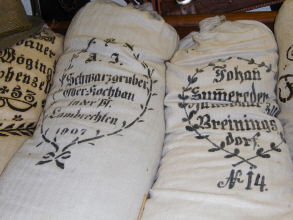 auer
Wözing
ohenzell
A. J.
Schwarzgruber
Ober Kochbau
in der Pf.
Lambrechten
1907
Johan
Zumereder
Breinings
dorf
No 14.